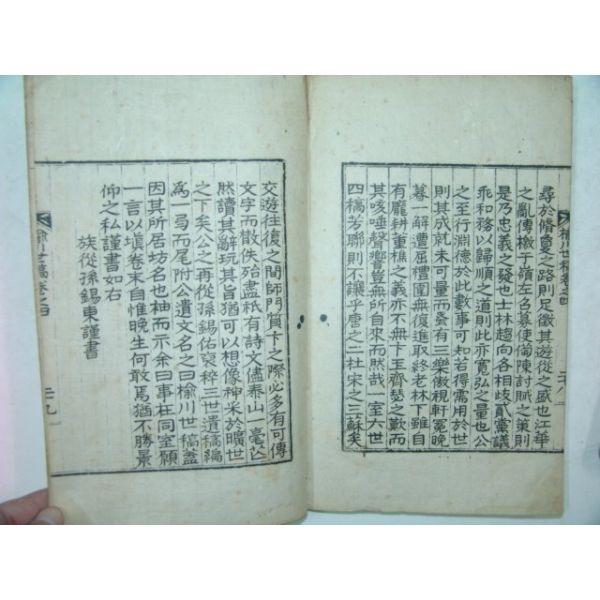 尋於脩夐之路則足徵其遊從之盛也江華
之亂傳檄于嶺左名募使偏陳討賊之策則
是乃忠義之發也士林趨向各相歧貳黨議
乖和務以歸順之道則此亦寬弘之量也公
之至行淵德於此數事可知若得需用於世
則其成就未可量而蚤有三樂徵稗軒冕晚
暮一解遭屈禮圍無復進取終老林下雖自
有龐耕重樵之義亦不無卜王齊瑟之歎而
其咳唾聲響豈無所自來而然哉一室六世
四稿芳聯則不讓乎唐之二杜宋之三蘇矣
楡川世稿卷之四
交遊往復之間師門質卞之際必多有可傳
文字而散佚殆盡秖有詩文僅泰山一毫公
然讀其辭玩其旨猶可以想像神采於曠世
之下矣公之再從孫錫佑裒稡三世遺稿編
爲一局而尾附公遺文名之曰楡川世稿盖
因其所居坊名也袖而示余曰事在同室願
一言以塡卷末自惟晚生何敢焉猶不勝景
仰之私謹書如右
族從孫錫東謹書
楡川世稿卷之四
二十九